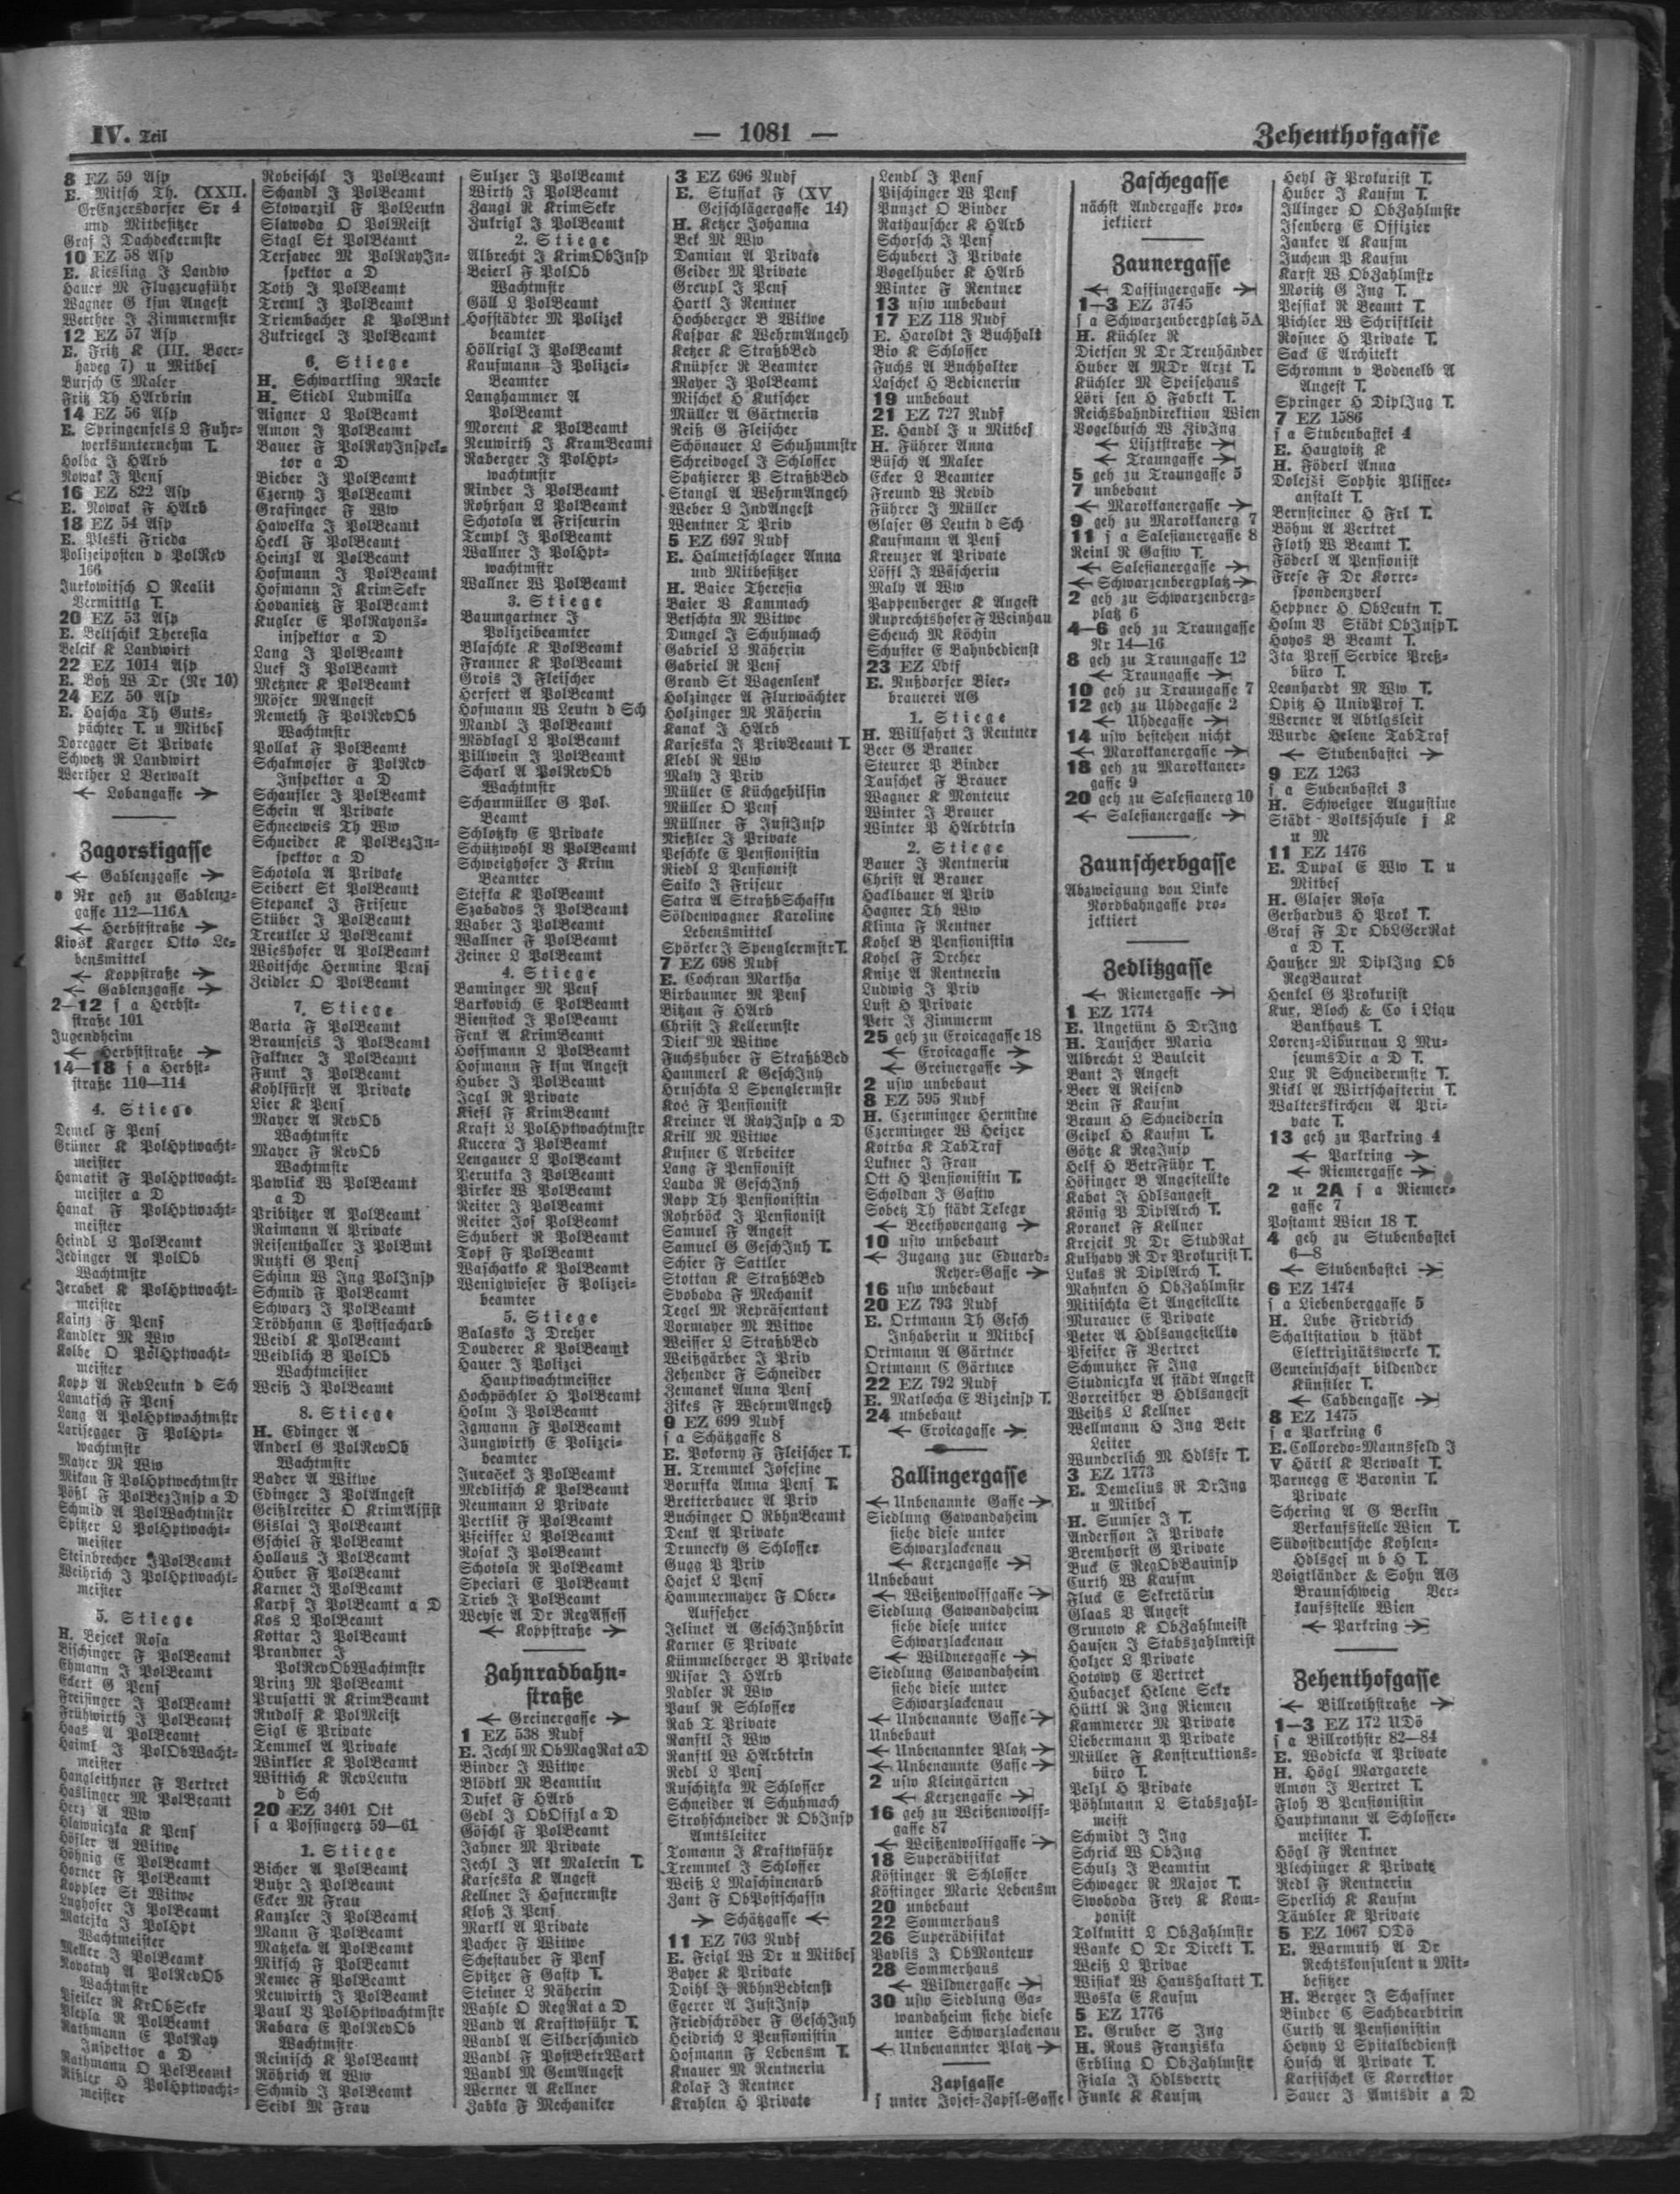 IV. Teil
— 1081 —
Zehenthofgasse
8 EZ 59 Asp
E. Mitsch Th. (XXII.
GrEnzersdorfer Sr 4
und Mitbesitzer
Graf J Dachdeckermstr
10 EZ 58 Asp
E. Kiesling J Landw
Hauer M Flugzeugführ
Wagner G kfm Angest
Werther J Zimmermstr
12 EZ 57 Asp
E. Fritz K (III. Boer-
haveg 7) u Mitbes
Bursch E Maler
Fritz Th HArbrin
14 EZ 56 Asp
E. Springensels L Fuhr-
werksunternehm T.
Holba J HArb
Nowak J Pens
16 EZ 822 Asp
E. Nowak F HArb
18 EZ 54 Asp
E. Pleski Frieda
Polizeiposten d PolRev
166
Jurkowitsch O Realit
Vermittlg T.
20 EZ 53 Asp
E. Beltschik Theresia
Belcik K Landwirt
22 EZ 1014 Asp
E. Voß W Dr (Nr 10)
24 EZ 50 Asp
E. Hascha Th Guts-
pächter T. u Mitbes
Doregger St Private
Schwetz R Landwirt
Werther L Verwalt
← Lobaugasse →
Zagorskigasse
← Gablenzgasse →
Nr geh zu Gablenz-
gasse 112—116A
← Herbststraße →
Kiosk Karger Otto Le-
bensmittel
← Koppstraße →
← Gablenzgasse →
2—12 s a Herbst-
straße 101
Jugendheim
← Herbststraße →
14—18 s a Herbst-
straße 110—114
4. Stiege
Demel F Pens
Grüner K PolHptwacht-
meister
Hamatik F PolHptwacht-
meister a D
Hanak F PolHptwacht-
meister
Heindl L PolBeamt
Jedinger A PolOb
Wachtmstr
Jerabek K PolHptwacht-
meister
Kainz F Pens
Kandler M Ww
Kolbe O PolHptwacht-
meister
Kopp A RevLeutn d Sch
Lamatsch F Pens
Lang A PolHptwachtmstr
Larisegger F PolHpt-
wachtmstr
Mayer M Ww
Mikan F PolHptwechtmstr
Pößl F PolBezInsp a D
Schmid A PolWachtmstr
Spitzer L PolHptwacht-
meister
Steinbrecher J PolBeamt
Weihrich J PolHptwacht-
meister
5. Stiege
H. Bejcek Rosa
Bischinger F PolBeamt
Ehmann J PolBeamt
Eckert G Pens
Freisinger J PolBeamt
Frühwirth J PolBeamt
Haas A PolBeamt
Haiml J PolObWacht-
meister
Hangleithner F Vertret
Haslinger M PolBeamt
Herz A Ww
Hlawniczka K Pens
Höfler A Witwe
Höhnig E PolBeamt
Horner F PolBeamt
Koppler St Witwe
Lughofer J PolBeamt
Matejka J PolHpt
Wachtmeister
Meller J PolBeamt
Novotny A PolRevOb
Wachtmstr
Pfeiler R KrObSekr
Plepla R PolBeamt
Rathmann E PolRay
Inspektor a D
Rathmann O PolBeamt
Rißler H PolHptwacht-
meister
Robeischl J PolBeamt
Schandl J PolBeamt
Skowarzil F PolLeutn
Slawoda O PolMeist
Stagl St PolBeamt
Tersavec M PolRayIn-
spektor a D
Toth J PolBeamt
Treml J PolBeamt
Triembacher K PolBmt
Zukriegel J PolBeamt
6. Stiege
H. Schwartling Marie
H. Stiedl Ludmilla
Aigner L PolBeamt
Amon J PolBeamt
Bauer F PolRayInspek-
tor a D
Bieber J PolBeamt
Czerny J PolBeamt
Grafinger F Ww
Hawelka J PolBeamt
Heckl F PolBeamt
Heinzl A PolBeamt
Hofmann J PolBeamt
Hofmann J KrimSekr
Hovanietz F PolBeamt
Kugler E PolRayons-
inspektor a D
Lang J PolBeamt
Luef J PolBeamt
Metzner K PolBeamt
Möser MAngest
Nemeth F PolRevOb
Wachtmstr
Pollak F PolBeamt
Schalmoser F PolRev
Inspektor a D
Schaufler J PolBeamt
Schein A Private
Schneeweis Th Ww
Schneider K PolBezIn-
spektor a D
Schotola A Private
Seibert St PolBeamt
Stepanek J Friseur
Stüber J PolBeamt
Treutler L PolBeamt
Wieshofer A PolBeamt
Woitsche Hermine Pens
Zeidler O PolBeamt
7. Stiege
Barta F PolBeamt
Braunseis J PolBeamt
Falkner J PolBeamt
Funk J PolBeamt
Kohlfürst A Private
Lier K Pens
Mayer A RevOb
Wachtmstr
Mayer F RevOb
Wachtmstr
Pawlick W PolBeamt
a D
Pribitzer A PolBeamt
Raimann A Private
Reisenthaller J PolBmt
Rutzki G Pens
Schinn W Ing PolInsp
Schmid F PolBeamt
Schwarz J PolBeamt
Trödhann E Postfacharb
Weidl K PolBeamt
Weidlich B PolOb
Wachtmeister
Weiß J PolBeamt
8. Stiege
H. Edinger A
Anderl G PolRevOb
Wachtmstr
Bader A Witwe
Edinger J PolAngest
Geißlreiter O KrimAssist
Gislai J PolBeamt
Gschiel F PolBeamt
Hollaus J PolBeamt
Huber F PolBeamt
Karner J PolBeamt
Karpf J PolBeamt a D
Kos L PolBeamt
Kottar J PolBeamt
Prandner J
PolRevObWachtmstr
Prinz M PolBeamt
Prusatti R KrimBeamt
Rudolf K PolMeist
Sigl E Private
Temmel A Private
Winkler K PolBeamt
Wittich K RevLeutn
d Sch
20 EZ 3401 Ott
s a Possingerg 59—61
1. Stiege
Bicher A PolBeamt
Buhr J PolBeamt
Ecker M Frau
Kanzler J PolBeamt
Mann F PolBeamt
Matzeka A PolBeamt
Mitsch F PolBeamt
Nemec F PolBeamt
Neuwirth J PolBeamt
Paul V PolHptwachtmstr
Rabara E PolRevOb
Wachtmstr
Reinisch K PolBeamt
Röhrich A Ww
Schmid J PolBeamt
Seidl M Frau
Sulzer J PolBeamt
Wirth J PolBeamt
Zangl R KrimSekr
Zukrigl J PolBeamt
2. Stiege
Albrecht J KrimObInsp
Beierl F PolOb
Wachtmstr
Göll L PolBeamt
Hofstädter M Polizei
beamter
Höllrigl J PolBeamt
Kaufmann J Polizei-
Beamter
Langhammer A
PolBeamt
Morent K PolBeamt
Neuwirth J KramBeamt
Raberger J PolHpt-
wachtmstr
Rinder J PolBeamt
Rohrhan L PolBeamt
Schotola A Friseurin
Templ J PolBeamt
Wallner J PolHpt-
wachtmstr
Wallner W PolBeamt
3. Stiege
Baumgartner J
Polizeibeamter
Blaschke K PolBeamt
Franner K PolBeamt
Grois J Fleischer
Herfert A PolBeamt
Hofmann W Leutn d Sch
Mandl J PolBeamt
Mödlagl L PolBeamt
Pillwein J PolBeamt
Scharl A PolRevOb
Wachtmstr
Schaumüller G Pol-
Beamt
Schlotzky E Private
Schützwohl V PolBeamt
Schweighofer J Krim
Beamter
Stefka K PolBeamt
Szabados J PolBeamt
Waber J PolBeamt
Wallner F PolBeamt
Zeiner L PolBeamt
4. Stiege
Baminger M Pens
Barkovich E PolBeamt
Bienstock J PolBeamt
Fenk A KrimBeamt
Hoffmann L PolBeamt
Hofmann F kfm Angest
Huber J PolBeamt
Jagl R Private
Kiesl F KrimBeamt
Kraft L PolHptwachtmstr
Kucera J PolBeamt
Lengauer L PolBeamt
Perutka J PolBeamt
Pirker W PolBeamt
Reiter J PolBeamt
Reiter Jos PolBeamt
Schubert R PolBeamt
Topf F PolBeamt
Waschatko K PolBeamt
Wenigwieser F Polizei-
beamter
5. Stiege
Balasko J Dreher
Douderer K PolBeamt
Hauer J Polizei
Hauptwachtmeister
Hochpöchler H PolBeamt
Holm J PolBeamt
Jgmann F PolBeamt
Jungwirth E Polizei-
beamter
Juraček J PolBeamt
Medlitsch K PolBeamt
Neumann L Private
Pertlik F PolBeamt
Pfeiffer L PolBeamt
Rosak J PolBeamt
Schotola R PolBeamt
Speciari E PolBeamt
Trieb J PolBeamt
Weyse A Dr RegAssess
← Koppstraße →
Zahnradbahn-
straße
← Greinergasse →
1 EZ 538 Nudf
E. Jechl M ObMagRat a D
Binder J Witwe
Blödtl M Beamtin
Dusek F HArb
Gedl J ObOffzl a D
Göschl F PolBeamt
Jahner M Private
Jechl J Ak Malerin T.
Karfeska K Angest
Kellner J Hafnermstr
Kloß J Pens
Markl A Private
Pacher F Witwe
Schestauber F Pens
Spitzer F Gastp T.
Steiner L Näherin
Wahle O RegRat a D
Wand A Kraftwführ T.
Wandl A Silberschmied
Wandl F PostBetrWart
Wandl M GemAngest
Werner A Kellner
Zabka F Mechaniker
3 EZ 696 Nudf
E. Stussak F (XV
Geischlägergasse 14)
H. Ketzer Johanna
Bek M Ww
Damian A Private
Geider M Private
Greupl J Pens
Hartl J Rentner
Hochberger B Witwe
Kaspar K WehrmAngeh
Ketzer K StraßbBed
Knüpfer R Beamter
Mayer J PolBeamt
Mischek H Kutscher
Müller A Gärtnerin
Reiß G Fleischer
Schönauer L Schuhmmstr
Schreivogel J Schlosser
Spatzierer P StraßbBed
Stangl A WehrmAngeh
Weber L IndAngest
Wentner T Priv
5 EZ 697 Nudf
E. Halmetschlager Anna
und Mitbesitzer
H. Baier Theresia
Baier V Kammach
Betschta M Witwe
Dungel J Schuhmach
Gabriel L Näherin
Gabriel R Pens
Grand St Wagenlenk
Holzinger A Flurwächter
Holzinger M Näherin
Kanak J HArb
Karfeska J PrivBeamt T.
Klebl R Ww
Maly J Priv
Müller E Küchgehilfin
Müller O Pens
Müllner F JustInsp
Nießler J Private
Peschke E Pensionistin
Riedl L Pensionist
Saiko J Friseur
Satra A StraßbSchaffn
Söldenwagner Karoline
Lebensmittel
Spörker J Spenglermstr T.
7 EZ 698 Nudf
E. Cochran Martha
Birbaumer M Pens
Bitzan F HArb
Christ J Kellermstr
Dietl M Witwe
Fuchshuber F StraßbBed
Hammerl K GeschInh
Hruschka L Spenglermstr
Koč F Pensionist
Kreiner A RayInsp a D
Krill M Witwe
Kufner C Arbeiter
Lang F Pensionist
Lauda R GeschInh
Rapp Th Pensionistin
Rohrböck J Pensionist
Samuel F Angest
Samuel G GeschInh T.
Schier F Sattler
Stottan K StraßbBed
Svoboda F Mechanik
Tegel M Repräsentant
Vormayer M Witwe
Weisser L StraßbBed
Weißgärber J Priv
Zehender F Schneider
Zemanek Anna Pens
Zikes F WehrmAngeh
9 EZ 699 Nudf
s a Schätzgasse 8
E. Pokorny F Fleischer T.
H. Tremmel Josefine
Boruska Anna Pens T.
Bretterbauer A Priv
Buchinger O RbhnBeamt
Denk A Private
Drunecky G Schlosser
Gugg P Priv
Hajek L Pens
Hammermayer F Ober-
Aufseher
Jelinek A GeschInhbrin
Karner E Private
Kümmelberger B Private
Misar J HArb
Nadler R Ww
Paul R Schlosser
Rab T Private
Ranftl J Ww
Ranftl W HArbtrin
Redl L Pens
Ruschitzka M Schlosser
Schneider A Schuhmach
Strohschneider R ObInsp
Amtsleiter
Tomann J Kraftwführ
Tremmel J Schlosser
Weiß L Maschinenarb
Zant F ObPostschaffn
→ Schätzgasse ←
11 EZ 703 Nudf
E. Feigl W Dr u Mitbes
Bayer K Private
Doihl J RbhnBedienst
Egerer A JustInsp
Friedschröder F GeschInh
Heidrich L Pensionistin
Hofmann F Lebensm T.
Knauer M Rentnerin
Kolař J Rentner
Krahlen H Private
Lendl J Pens
Pischinger W Pens
Punzet O Binder
Rathauscher K HArb
Schorsch J Pens
Schubert J Private
Vogelhuber K HArb
Winter F Rentner
13 usw unbebaut
17 EZ 118 Nudf
E. Haroldt J Buchhalt
Bio K Schlosser
Fuchs A Buchhalter
Laschek H Bedienerin
19 unbebaut
21 EZ 727 Nudf
E. Handl J u Mitbes
H. Führer Anna
Büsch A Maler
Ecker L Beamter
Freund W Revid
Führer J Müller
Glaser G Leutn d Sch
Kaufmann A Pens
Kreuzer A Private
Löffl J Wäscherin
Maly A Ww
Pappenberger K Angest
Ruprechtshofer F Weinhau
Scheuch M Köchin
Schuster E Bahnbedienst
23 EZ Ldtf
E. Nußdorfer Bier-
brauerei AG
1. Stiege
H. Willfahrt J Rentner
Beer G Brauer
Steurer P Binder
Tauschek F Brauer
Wagner K Monteur
Winter J Brauer
Winter P HArbtrin
2. Stiege
Bauer J Rentnerin
Christ A Brauer
Hacklbauer A Priv
Hagner Th Ww
Klima F Rentner
Kohel B Pensionistin
Kohel F Dreher
Knize A Rentnerin
Ludwig J Priv
Lust H Private
Petr J Zimmerm
25 geh zu Eroicagasse 18
← Eroicagasse →
← Greinergasse →
2 usw unbebaut
8 EZ 595 Nudf
H. Czerminger Hermine
Czerminger W Heizer
Kotrba K TabTraf
Lukner J Frau
Ott H Pensionistin T.
Scholdan J Gastw
Sobetz Th städt Telegr
← Beethovengang →
10 usw unbebaut
← Zugang zur Eduard-
Reyer-Gasse →
16 usw unbebaut
20 EZ 793 Nudf
E. Ortmann Th Gesch
Inhaberin u Mitbes
Ortmann A Gärtner
Ortmann C Gärtner
22 EZ 792 Nudf
E. Matlocha E Vizeinsp T.
24 unbebaut
← Eroicagasse →
Zallingergasse
← Unbenannte Gasse →
Siedlung Gawandaheim
siehe diese unter
Schwarzlackenau
← Kerzengasse →
Unbebaut
← Weißenwolfgasse →
Siedlung Gawandaheim
siehe diese unter
Schwarzlackenau
← Wildnergasse →
Siedlung Gawandaheim
siehe diese unter
Schwarzlackenau
← Unbenannte Gasse →
Unbebaut
← Unbenannter Platz →
← Unbenannte Gasse →
2 usw Kleingärten
← Kerzengasse →
16 geh zu Weißenwolff-
gasse 87
← Weißenwolffgasse →
18 Superädifikat
Köstinger R Schlosser
Köstinger Marie Lebensm
20 unbebaut
22 Sommerhaus
26 Superädifikat
Pavlis J ObMonteur
28 Sommerhaus
← Wildnergasse →
30 usw Siedlung Ga-
wandaheim siehe diese
unter Schwarzlackenau
← Unbenannter Platz →
Zapfgasse
s unter Josef-Zapfl-Gasse
Zaschegasse
nächst Andergasse pro-
jektiert
Zaunergasse
← Daffingergasse →
1—3 EZ 3745
s a Schwarzenbergplatz 5A
H. Küchler R
Dietsen R Dr Treuhänder
Huber A MDr Arzt T.
Küchler M Speisehaus
Löri sen H Fabrkt T.
Reichsbahndirektion Wien
Vogelbusch W ZivIng
← Lisztstraße →
← Traungasse →
5 geh zu Traungasse 5
7 unbebaut
← Marokkanergasse →
9 geh zu Marokkanerg 7
11 s a Salesianergasse 8
Reinl R Gastw T.
← Salesianergasse →
← Schwarzenbergplatz →
2 geh zu Schwarzenberg-
platz 6
4—6 geh zu Traungasse
Nr 14—16
8 geh zu Traungasse 12
← Traungasse →
10 geh zu Traungasse 7
12 geh zu Uhdegasse 2
← Uhdegasse →
14 usw bestehen nicht
← Marokkanergasse →
18 geh zu Marokkaner-
gasse 9
20 geh zu Salesianerg 10
← Salesianergasse →
Zaunscherbgasse
Abzweigung von Linke
Nordbahngasse pro-
jektiert
Zedlitzgasse
← Riemergasse →
1 EZ 1774
E. Ungetüm H DrIng
H. Tauscher Maria
Albrecht L Bauleit
Bant J Angest
Beer A Reisend
Bein F Kaufm
Braun H Schneiderin
Geipel H Kaufm T.
Götze K RegInsp
Helf H BetrFühr T.
Höfinger B Angestellte
Kabat J Hdlsangest
König P DiplArch T.
Koranek F Kellner
Krejcik N Dr StudRat
Kulhavy R Dr Prokurist T.
Lukas R DiplArch T.
Mahnken H ObZahlmstr
Mitischka St Angestellte
Murauer E Private
Peter A Hdlsangestellte
Pfeifer F Vertret
Schmutzer F Ing
Studniczka A städt Angest
Vorreither B Hdlsangest
Weihs L Kellner
Wellmann H Ing Betr
Leiter
Wunderlich M Hdlsfr T.
3 EZ 1773
E. Demelius R DrIng
u Mitbes
H. Sumser J T.
Andersson J Private
Bremhorst G Private
Buck E RegObBauinsp
Curth W Kaufm
Fluck E Sekretärin
Glaas V Angest
Grunow K ObZahlmeist
Hausen J Stabszahlmeist
Holzer L Private
Hotowy E Vertret
Hubaczek Helene Sekr
Hüttl R Ing Riemen
Kammerer M Private
Liebermann P Private
Müller F Konstruktions-
büro T.
Pelzl H Private
Pöhlmann L Stabszahl-
meist
Schmidt J Ing
Schrick W ObIng
Schulz J Beamtin
Schwager R Major T.
Swoboda Frey K Kom-
ponist
Tolkmitt L ObZahlmstr
Wanke O Dr Direkt T.
Weiß L Privae
Wisiak W Haushaltart T.
Woska E Kaufm
5 EZ 1776
E. Gruber S Ing
H. Rous Franziska
Erbling O ObZahlmstr
Fiala J Hdlsvertr
Funke K Kaufm
Heyl F Prokurist T.
Huber J Kaufm T.
Jllinger O ObZahlmstr
Isenberg E Offizier
Janker A Kaufm
Juchem P Kaufm
Karst W ObZahlmstr
Moritz G Ing T.
Pessiak R Beamt T.
Pichler W Schriftleit
Rosner H Private T.
Sack E Architekt
Schromm v Bodenelb A
Angest T.
Springer H DiplIng T.
7 EZ 1586
s a Stubenbastei 4
E. Haugwitz K
H. Föderl Anna
Dolejsi Sophie Plissee-
anstalt T.
Bernsteiner H Frl T.
Böhm A Vertret
Floth W Beamt T.
Föderl A Pensionist
Frese F Dr Korre-
spondenzverl
Heppner H ObLeutn T.
Holm V Städt ObInsp T.
Hoyos B Beamt T.
Ita Press Service Preß-
büro T.
Leonhardt M Ww T.
Opitz H UnivProf T.
Werner A Abtlgsleit
Wurde Helene TabTraf
← Stubenbastei →
9 EZ 1263
s a Subenbastei 3
H. Schweiger Augustine
Städt Volksschule j K
u M
11 EZ 1476
E. Dupal E Ww T. u
Mitbes
H. Glaser Rosa
Gerhardus H Prok T.
Graf F Dr ObLGerRat
a D T.
Haußer M DiplIng Ob
RegBaurat
Henkel G Prokurist
Kux, Bloch & Co i Liqu
Bankhaus T.
Lorenz-Liburnau L Mu-
seumsDir a D T.
Lux R Schneidermstr T.
Rickl A Wirtschafterin T.
Walterskirchen A Pri-
vate T.
13 geh zu Parkring 4
← Parkring →
← Riemergasse →
2 u 2A s a Riemer-
gasse 7
Postamt Wien 18 T.
4 geh zu Stubenbastei
6—8
← Stubenbastei →
6 EZ 1474
s a Liebenberggasse 5
H. Lube Friedrich
Schaltstation d städt
Elektrizitätswerke T.
Gemeinschaft bildender
Künstler T.
← Cobdengasse →
8 EZ 1475
s a Parkring 6
E. Colloredo-Mannsfeld J
V Härtl K Verwalt T.
Parnegg E Baronin T.
Private
Schering A G Berlin
Verkaufsstelle Wien T.
Südostdeutsche Kohlen-
Hdlsges m b H T.
Voigtländer & Sohn AG
Braunschweig Ver-
kaufsstelle Wien
← Parkring →
Zehenthofgasse
← Billrothstraße →
1—3 EZ 172 UDö
s a Billrothstr 82—84
E. Wodicka A Private
H. Högl Margarete
Amon J Vertret T.
Floh B Pensionistin
Hauptmann A Schlosser-
meister T.
Högl F Rentner
Plechinger K Private
Redl F Rentnerin
Sperlich K Kaufm
Täubler K Private
5 EZ 1067 ODö
E. Warmuth A Dr
Rechtskonsulent u Mit-
besitzer
H. Berger J Schaffner
Binder C Sachbearbtrin
Curth A Pensionistin
Heyny L Spitalbedienst
Husch A Private T.
Karsischek E Korrektor
Sauer J Amtsdir a D